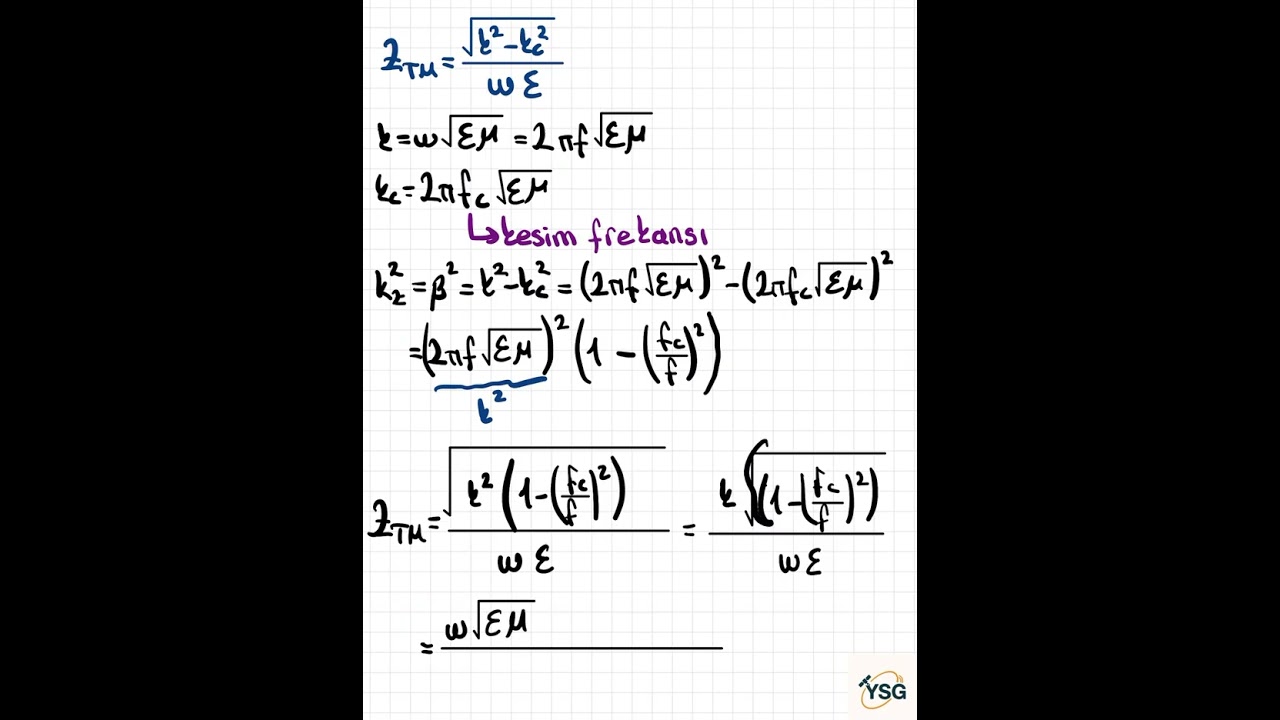 Z_TM = √(k² - k_c²) / ωε
k = ω√(εμ) = 2πf√(εμ)
k_c = 2πf_c√(εμ)
↳ kesim frekansı
k_z² = β² = k² - k_c² = (2πf√(εμ))² - (2πf_c√(εμ))²
= (2πf√(εμ))² (1 - (f_c/f)²)
k²
Z_TM = √(k² (1 - (f_c/f)²)) / ωε = k√((1 - (f_c/f)²)) / ωε
= ω√(εμ)
YSG